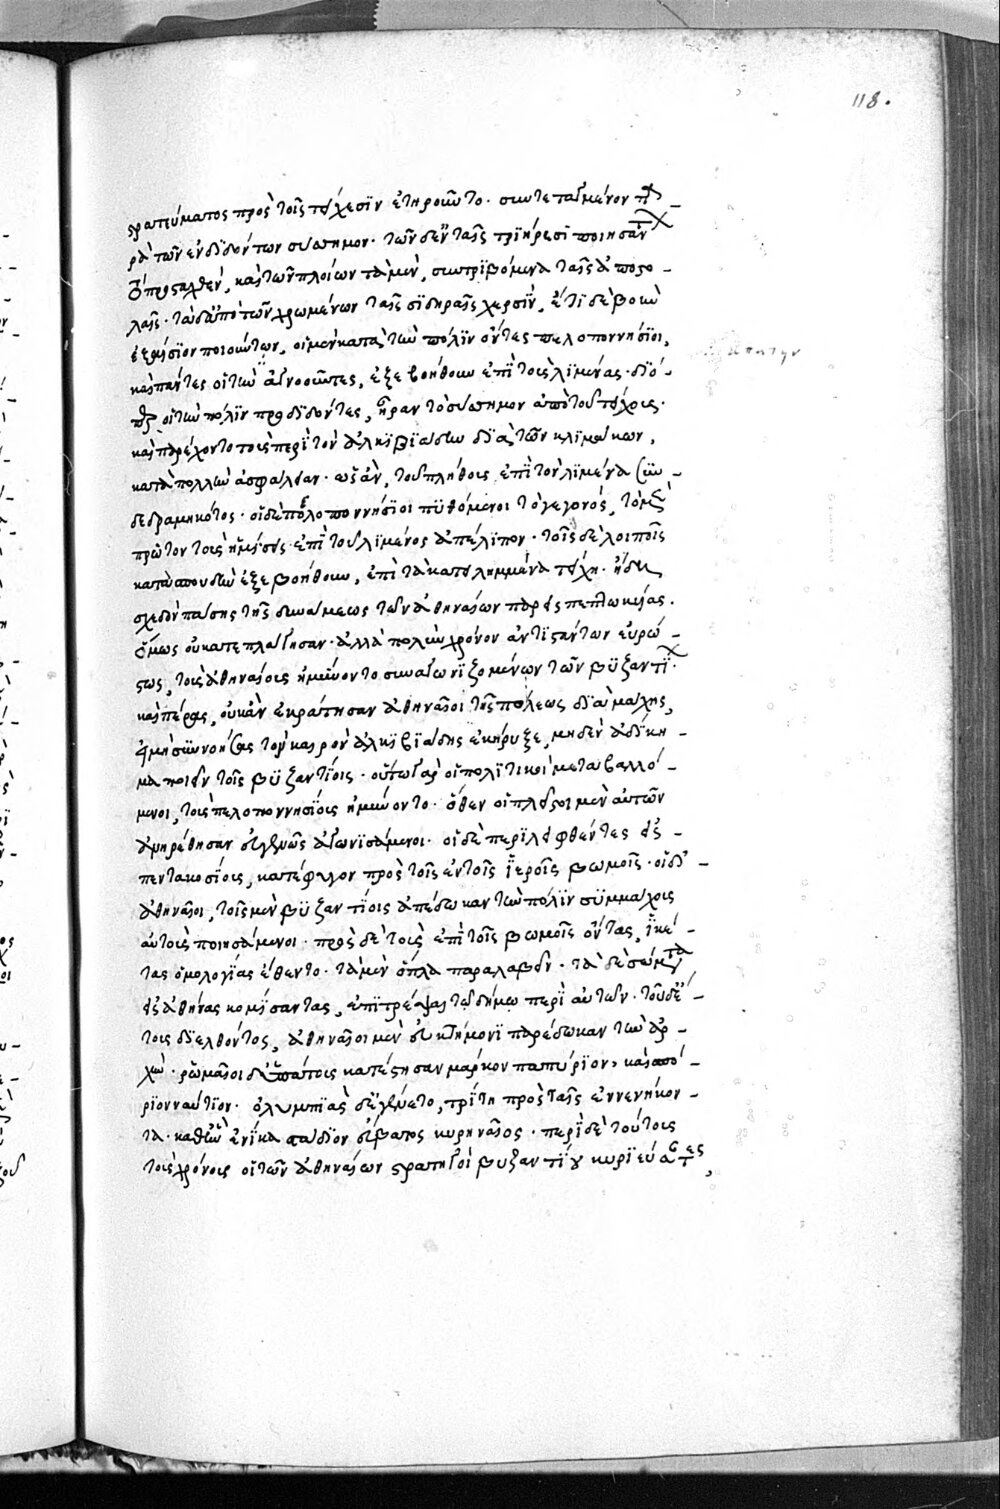 118.
στρατεύματος πρὸς τοῖς τείχεσιν ἐτηροῦντο· συντεταγμένον πα-
ρὰ τῶν ἐνδιδόντων σύσσημον· τῶν δ' ἐν ταῖς τριήρεσι ποιησάντων
τὸ προσταχθέν, καὶ τῶν πλοίων τὰ μὲν, συντριβόμενα ταῖς ἀποστο-
λαῖς· τὰ δ' ἀποσπᾶν χρωμένων ταῖς σιδηραῖς χερσίν, ἔτι δὲ βοὴν
ἐξαίσιον ποιούντων, οἱ μὲν κατὰ τὴν πόλιν ὄντες πελοποννήσιοι,
ἀπάτην
καὶ πάντες οἱ τὴν ἀγνοοῦντες, ἐξεβοήθουν ἐπὶ τοὺς λιμένας· διό-
περ οἱ τὴν πόλιν προδιδόντες, ἦραν τὸ σύσσημον ἀπὸ τοῦ τείχους·
καὶ παρείχοντο τοὺς περὶ τὸν ἀλκιβιάδην διὰ τῶν κλιμάκων,
κατὰ πολλὴν ἀσφάλειαν· ὡς ἂν, τοῦ πλήθους ἐπὶ τὸν λιμένα συν-
δεδραμηκότος· οἱ δὲ πελοποννήσιοι πυθόμενοι τὸ γεγονός, τὸ μὲν
πρῶτον τοὺς ἡμίσεις ἐπὶ τοῦ λιμένος ἀπέλιπον· τοῖς δὲ λοιποῖς
κατὰ σπουδὴν ἐξεβοήθουν, ἐπὶ τὰ κατειλημμένα τείχη· ἤδη
σχεδὸν πάσης τῆς δυνάμεως τῶν ἀθηναίων παρεισπεπτωκυίας.
ὅμως οὐ κατεπλάγησαν· ἀλλὰ πολὺν χρόνον ἀντιστάντων εὐρώ-
στως, τοὺς ἀθηναίους ἠμύνοντο συναγωνιζομένων τῶν βυζαντίων·
καὶ πέρας, οὐκ ἂν ἐκράτησαν ἀθηναῖοι τῆς πόλεως διὰ μάχης,
εἰ μὴ συννοήσας τὸν καιρὸν ἀλκιβιάδης ἐκήρυξε, μηδὲν ἀδίκη-
μα ποιεῖν τοῖς βυζαντίοις· οὕτω γὰρ οἱ πολιτικοὶ μεταβαλλό-
μενοι, τοὺς πελοποννησίους ἠμύνοντο· ὅθεν οἱ πλεῖστοι μὲν αὐτῶν
ἀνῃρέθησαν εὐγενῶς ἀγωνισάμενοι· οἱ δὲ περιλειφθέντες εἰς
πεντακοσίους, κατέφυγον πρὸς τοῖς ἐν τοῖς ἱεροῖς βωμοῖς· οἱ δ' -
ἀθηναῖοι, τοῖς μὲν βυζαντίοις ἀπέδωκαν τὴν πόλιν συμμάχους
αὐτοὺς ποιησάμενοι· πρὸς δὲ τοὺς ἐπὶ τοῖς βωμοῖς ὄντας, ἱκέ-
τας ὁμολογίας ἔθεντο· τὰ μὲν ὅπλα παραλαβεῖν· τὰ δὲ σώματα
εἰς ἀθήνας κομίσαντας, ἐπιτρέψαι τῷ δήμῳ περὶ αὐτῶν· τοῦ δ' ἔ-
τους διελθόντος, ἀθηναῖοι μὲν εὐκτήμονι παρέδωκαν τὴν ἀρ-
χήν· ῥωμαῖοι δ' ὑπάτους κατέστησαν μάρκον παπύριον, καὶ σπό-
ριον ναύτιον· ὀλυμπιὰς δ' ἐγένετο, τρίτη πρὸς ταῖς ἐννενήκον-
τα· καθ' ἣν ἐνίκα στάδιον εὔβατος κυρηναῖος· περὶ δὲ τούτους
τοὺς χρόνους οἱ τῶν ἀθηναίων στρατηγοὶ βυζαντίου κυριεύσαντες,